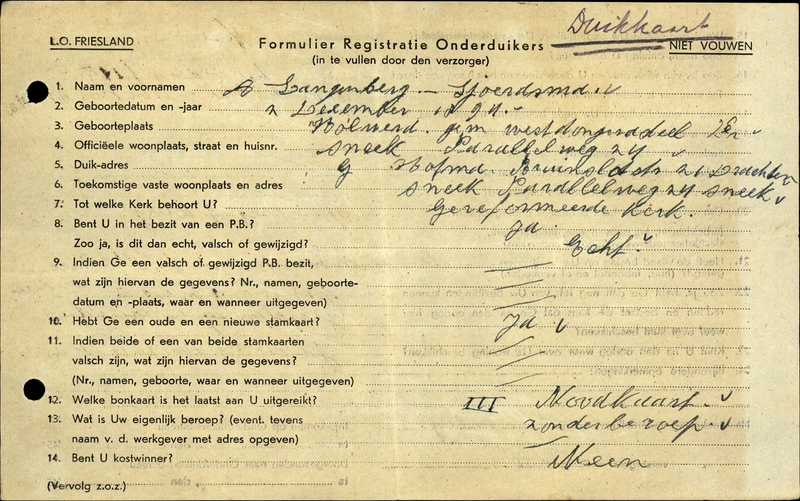 Duikkaart
L.O. FRIESLAND
Formulier Registratie Onderduikers
NIET VOUWEN
(in te vullen door den verzorger)
1. Naam en voornamen A Langenberg — Sjoerdsma.
2. Geboortedatum en -jaar 2 December 1891.
3. Geboorteplaats Holwerd. gem westdongeradeel
4. Officiëele woonplaats, straat en huisnr. Sneek Parallelweg
5. Duik-adres G Hofma. Drachten
6. Toekomstige vaste woonplaats en adres Sneek Parallelweg Sneek
7. Tot welke Kerk behoort U? Gereformeerde Kerk.
8. Bent U in het bezit van een P.B.? Ja.
Zoo ja, is dit dan echt, valsch of gewijzigd? Echt
9. Indien Ge een valsch of gewijzigd P.B. bezit,
wat zijn hiervan de gegevens? Nr., namen, geboorte-
datum en -plaats, waar en wanneer uitgegeven)
10. Hebt Ge een oude en een nieuwe stamkaart? Ja
11. Indien beide of een van beide stamkaarten
valsch zijn, wat zijn hiervan de gegevens?
(Nr., namen, geboorte, waar en wanneer uitgegeven)
12. Welke bonkaart is het laatst aan U uitgereikt? III Noodkaart.
13. Wat is Uw eigenlijk beroep? (event. tevens zonder beroep
naam v. d. werkgever met adres opgeven)
14. Bent U kostwinner? Neen
(Vervolg z.o.z.)